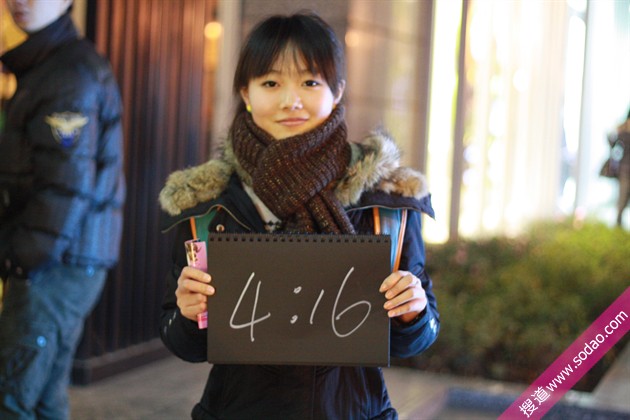 4:16
搜道www.sodao.com